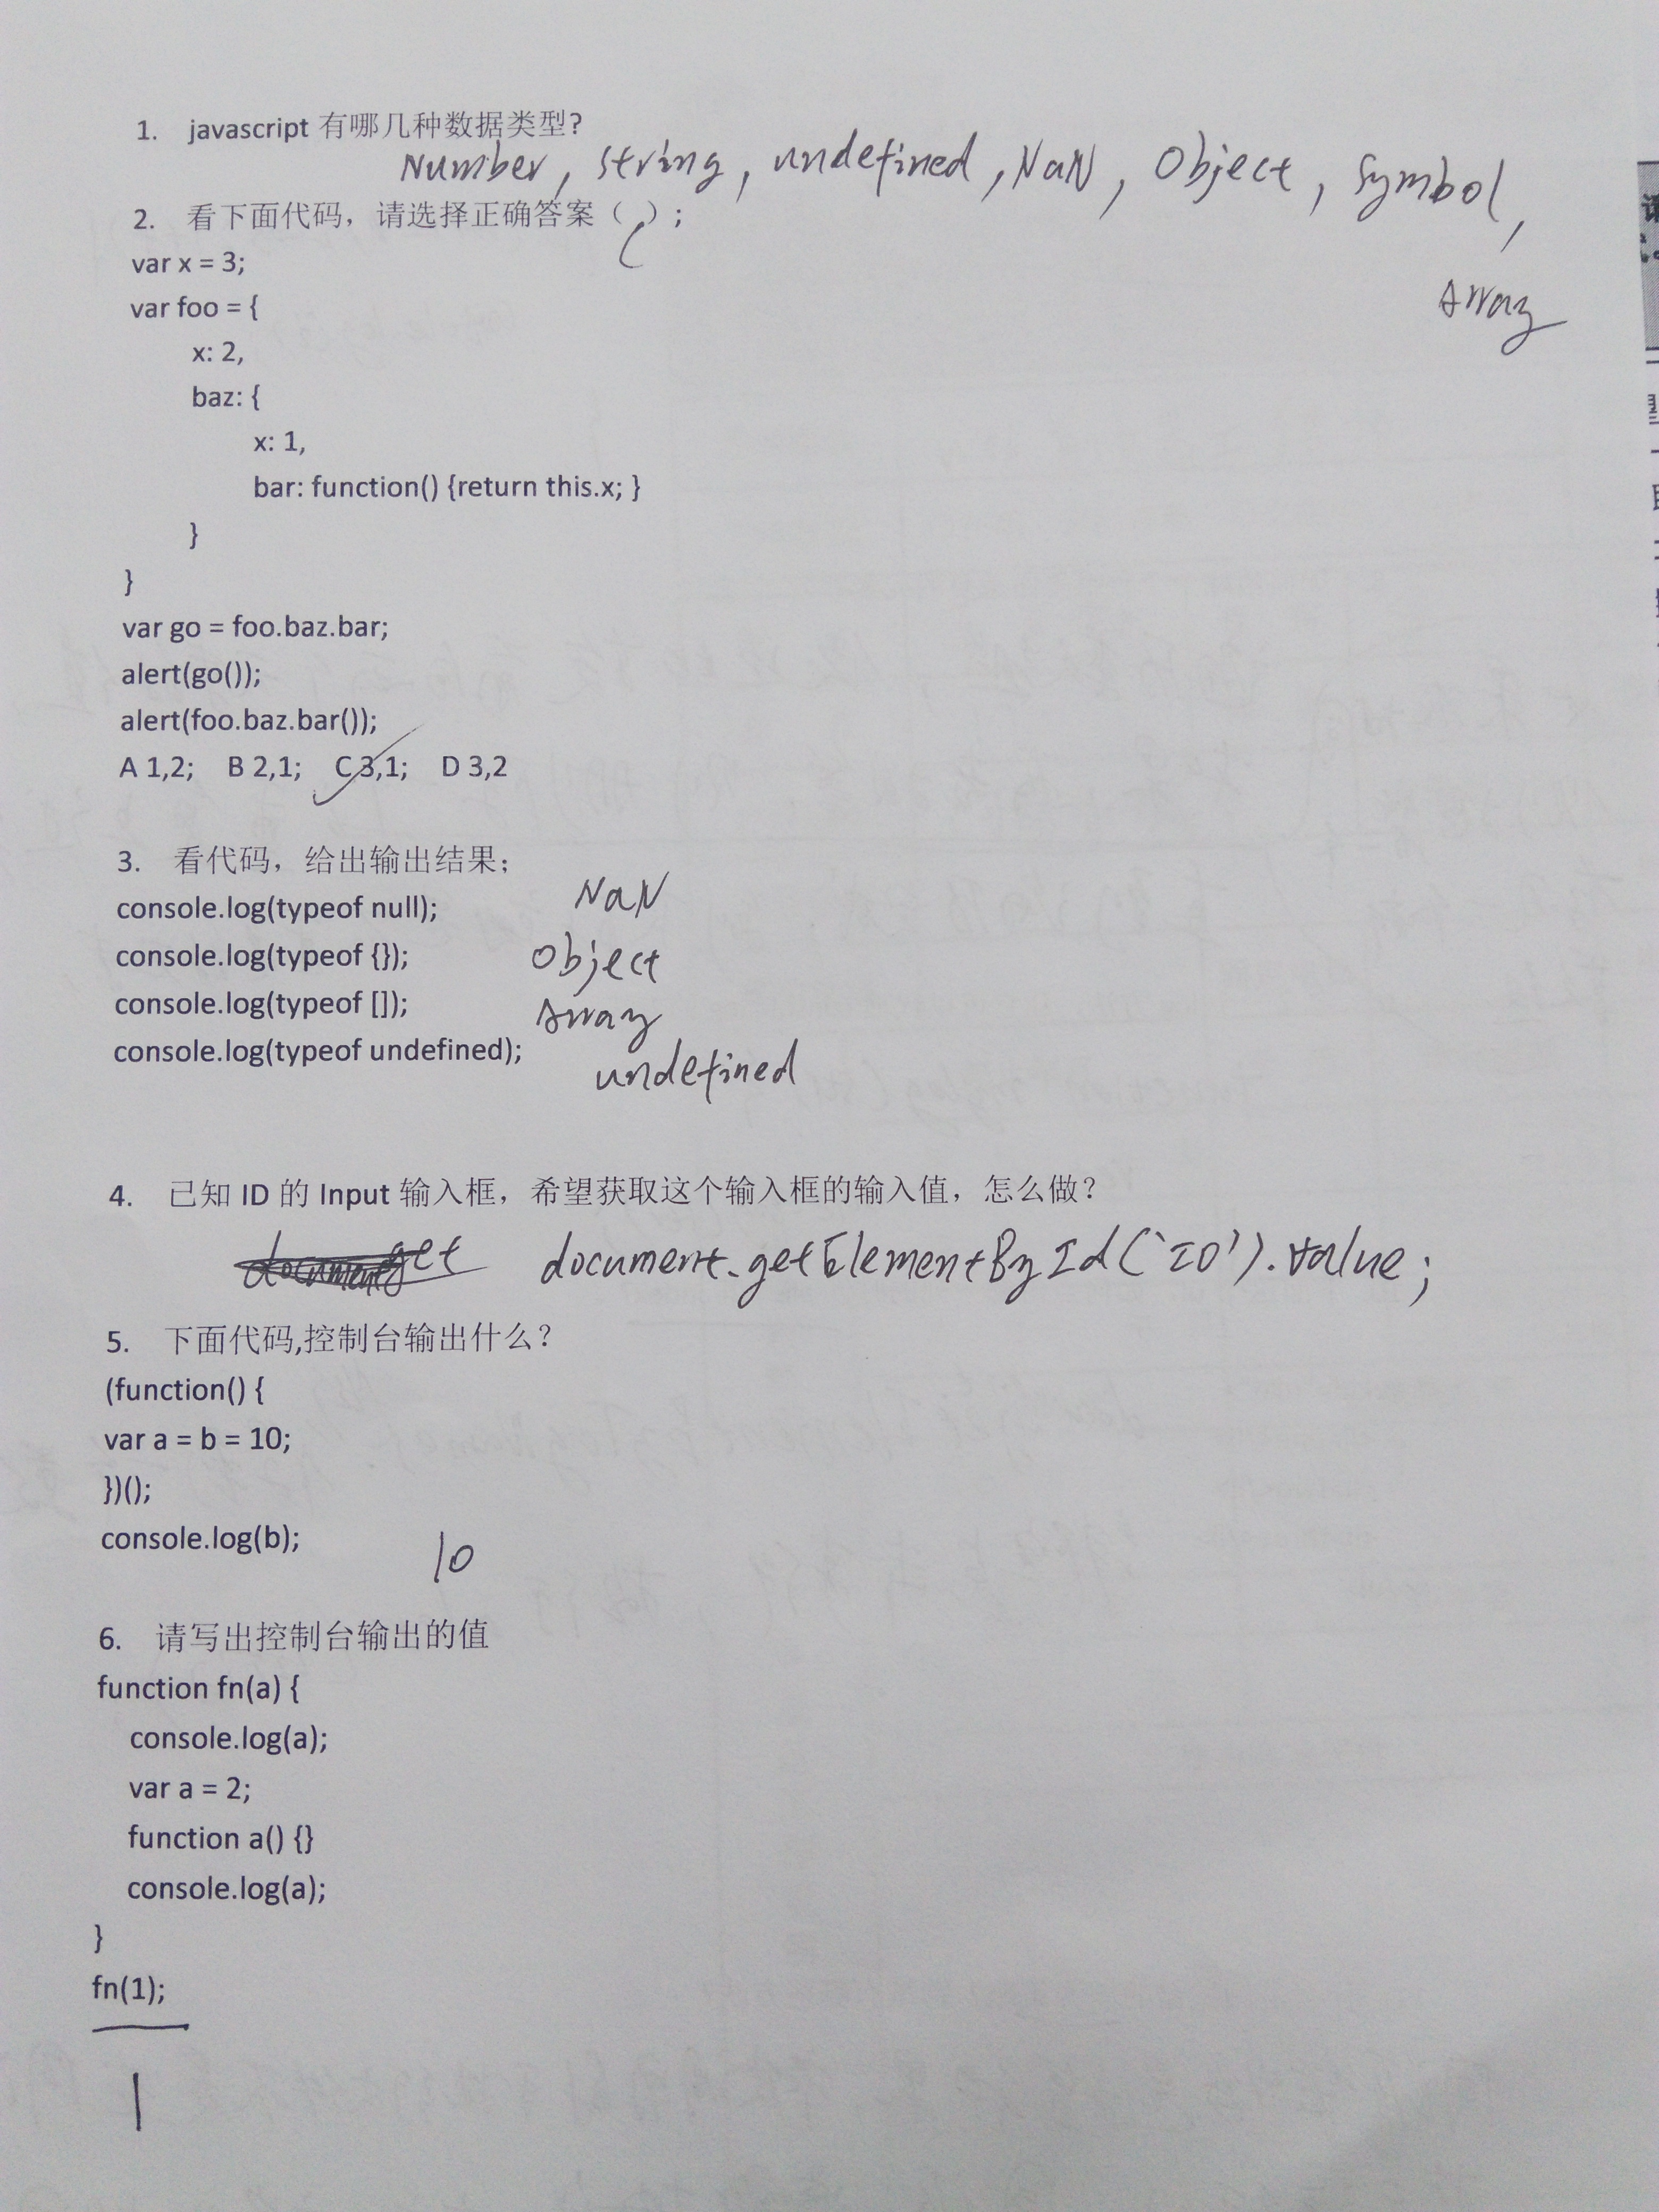 1. javascript 有哪几种数据类型?
Number, string, undefined, NaN, Object, Symbol,
Array
2. 看下面代码，请选择正确答案（C）;
var x = 3;
var foo = {
x: 2,
baz: {
x: 1,
bar: function() {return this.x; }
}
}
var go = foo.baz.bar;
alert(go());
alert(foo.baz.bar());
A 1,2; B 2,1; C 3,1; D 3,2
3. 看代码，给出输出结果;
console.log(typeof null); NaN
console.log(typeof {}); Object
console.log(typeof []); Array
console.log(typeof undefined); undefined
4. 已知 ID 的 Input 输入框，希望获取这个输入框的输入值，怎么做?
document.getElementById('ID').value;
5. 下面代码,控制台输出什么?
(function() {
var a = b = 10;
})();
console.log(b); 10
6. 请写出控制台输出的值
function fn(a) {
console.log(a);
var a = 2;
function a() {}
console.log(a);
}
fn(1);
1